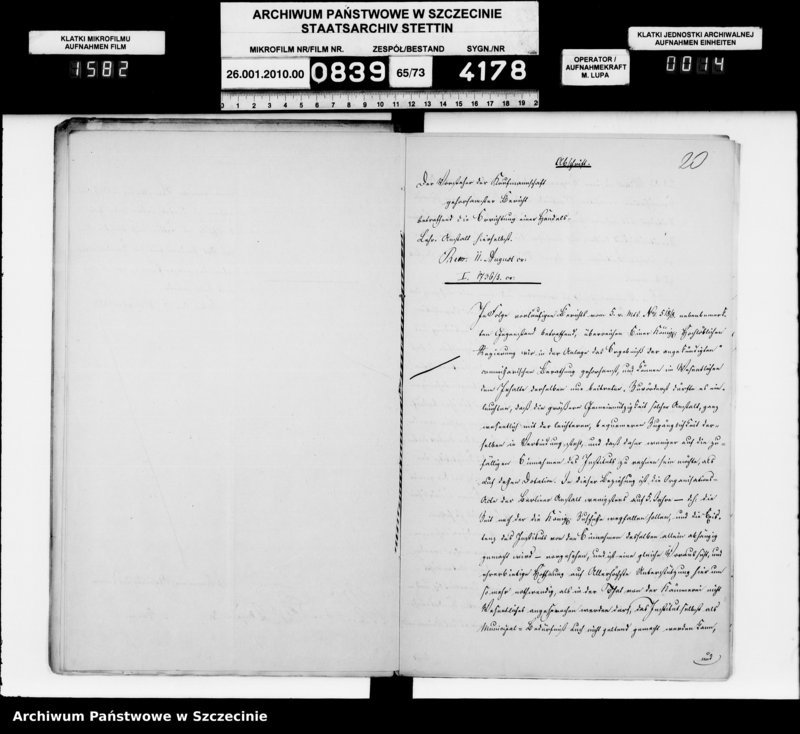 ARCHIWUM PAŃSTWOWE W SZCZECINIE
STAATSARCHIV STETTIN
KLATKI MIKROFILMU
AUFNAHMEN FILM
1582
MIKROFILM NR/FILM NR.
ZESPÓŁ/BESTAND
SYGN./NR
26.001.2010.00
0839
65/73
4178
0 1 2 3 4 5 6 7 8 9 10 11 12 13 14 15 16 17 18 19 2
OPERATOR /
AUFNAHMEKRAFT
M. LUPA
KLATKI JEDNOSTKI ARCHIWALNEJ
AUFNAHMEN EINHEITEN
0014
Abschrift.
20
Der Vorsteher der Kaufmannschaft
gehorsamster Bericht
betreffend die Errichtung einer Handels-
Lehr-Anstalt hierselbst.
11. August cr.
I. cr.
In Folge vorläufigen Berichts vom 5. v. Mts. No nebenbemerk
ten Gegenstand betreffend, überreichen Einer Königl. Hochlöblichen
Regierung wir in der Anlage das Ergebniß der angekündigten
commissarischen Berathung gehorsamst, und können im Wesentlichen
dem Inhalte derselben nur beitreten. Zuvörderst dürfte es ein-
leuchten, daß die größere Gemeinnützigkeit solcher Anstalt, ganz
wesentlich mit der leichteren, bequemeren Zugänglichkeit der-
selben in Verbindung steht, und daß daher weniger auf die zu-
fälligen Einnahmen des Instituts zu rechnen sein möchte, als
auf dessen Dotation. In dieser Beziehung ist die Organisations-
Acte der Berliner Anstalt wenigstens auf 5 Jahre – d.h. die
Zeit nach der die Königl. Zuschüsse wegfallen sollen, und die Exis-
tenz des Instituts von den Einnahmen desselben allein abhängig
gemacht wird – vorgesehen, und ist eine gleiche Voraussicht, und
ehrerbietige Hoffnung auf Allerhöchste Unterstützung hier um
so mehr nothwendig, als in der That von der Kämmerei nicht
Wesentliches angesprochen werden darf, das Institut selbst als
Municipal-Bedürfniß auch nicht geltend gemacht werden kann,
und
Archiwum Państwowe w Szczecinie